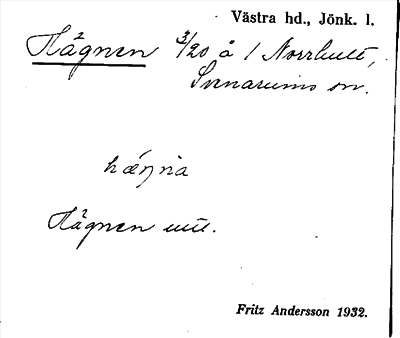 Västra hd., Jönk. l.
Hägnen 3/20 å 1 Norrhult,
Svenarums sn.
hæŋna
Hägnen
Fritz Andersson 1932.